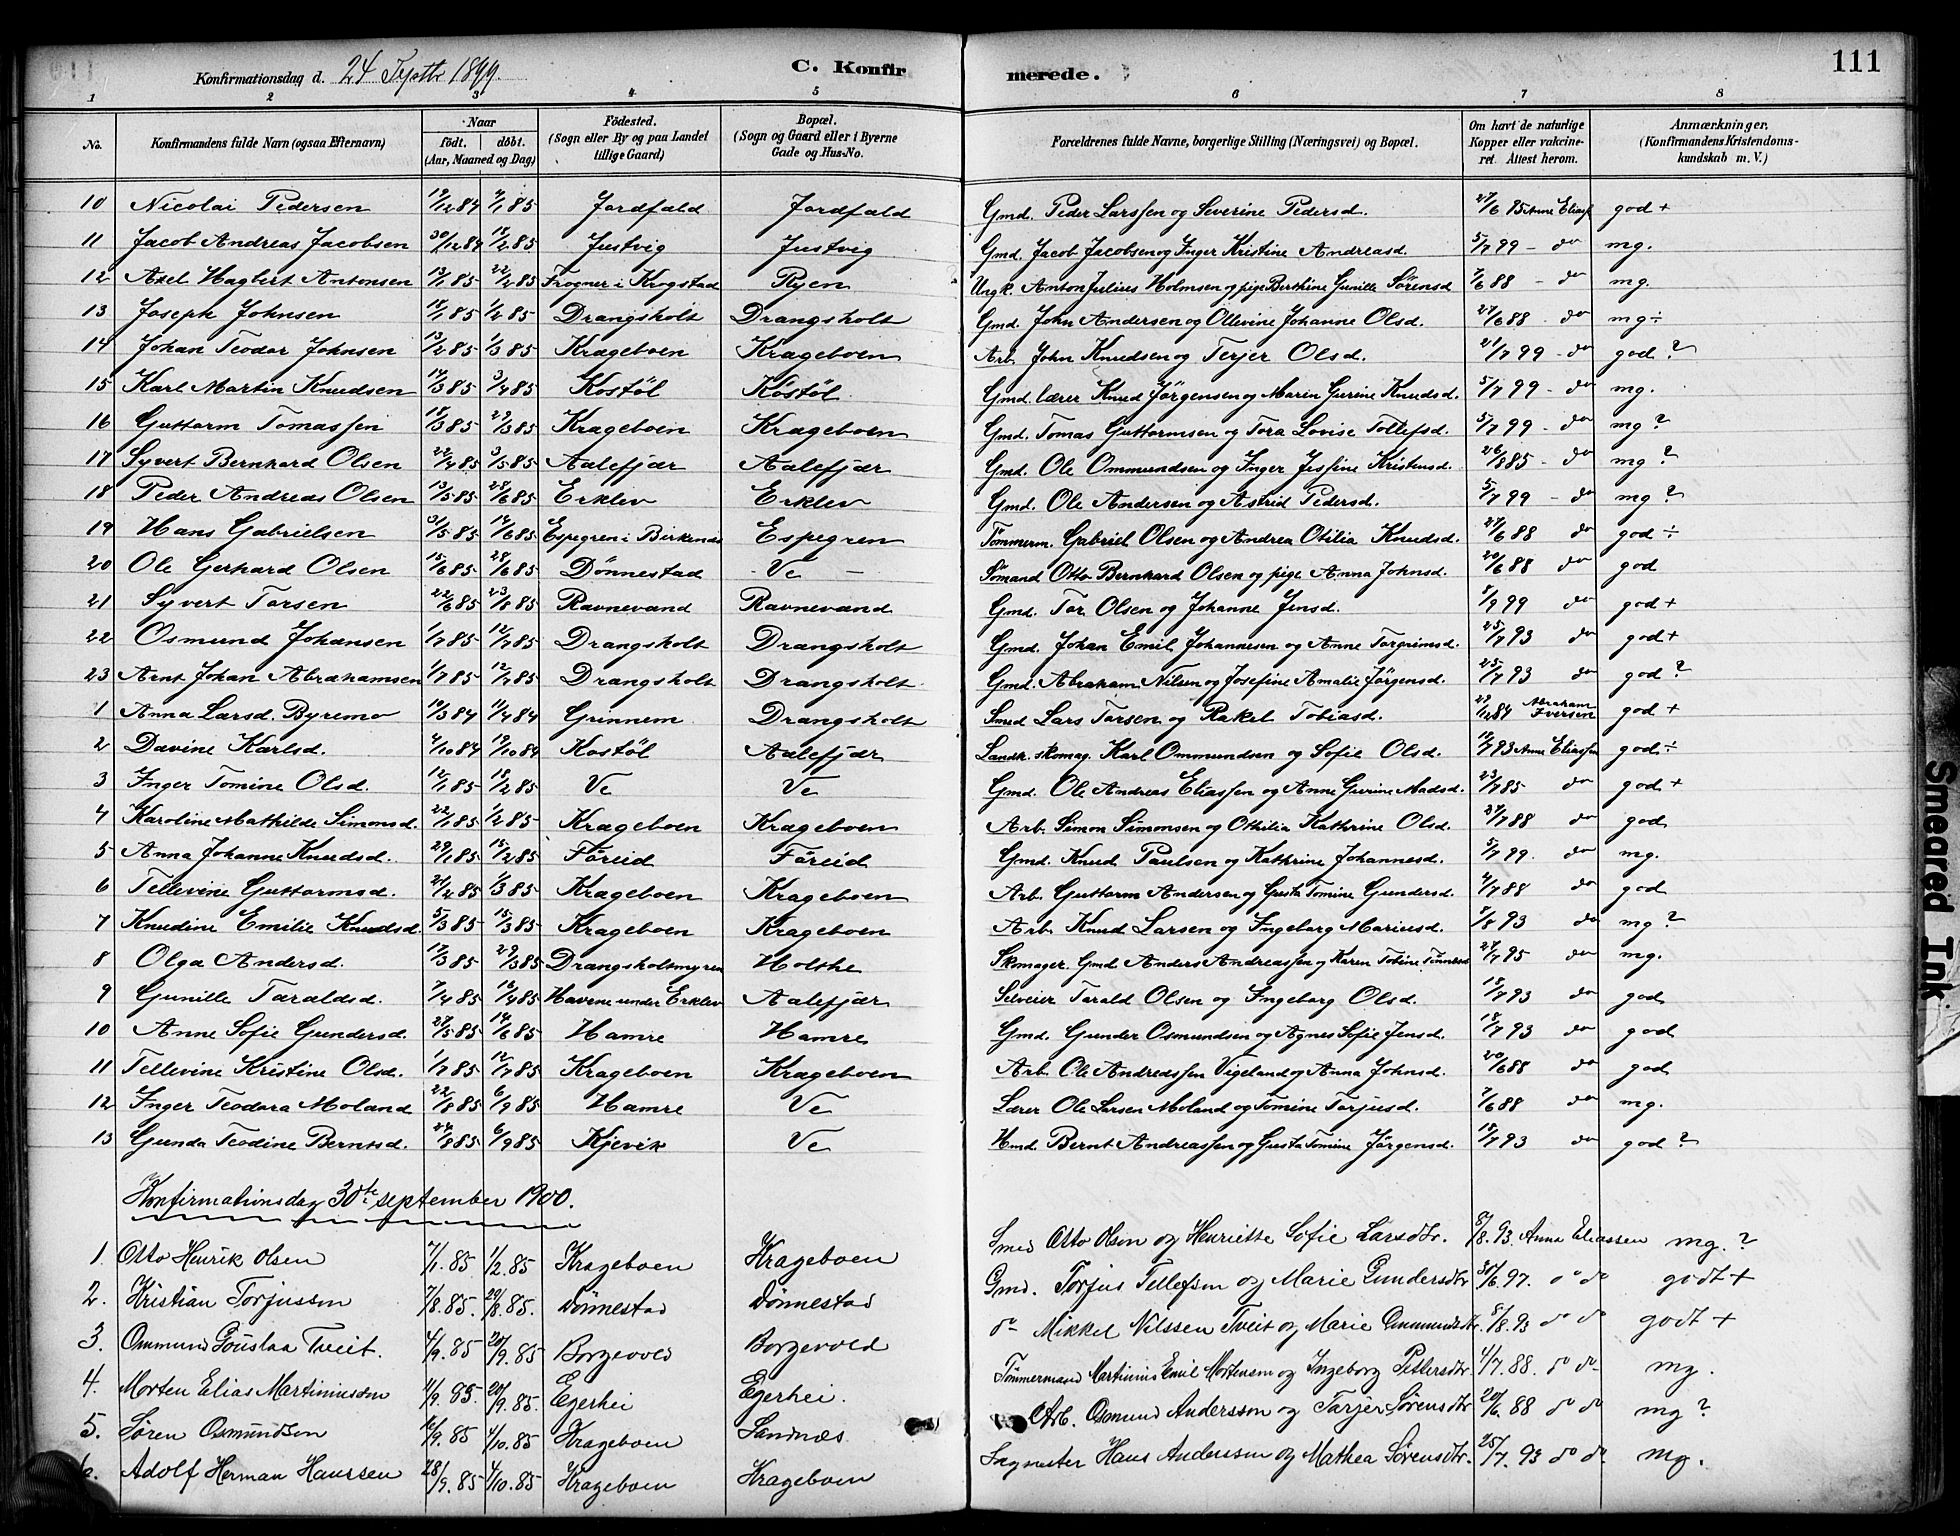 Konfirmationsdag d. 24 Septbr 1899. C. Konfirmerede. 111
1 2 3 4 5 6 7 8
No. Konfirmandens fulde Navn (ogsaa Efternavn) Naar født. døbt. (Aar, Maaned og Dag) Fødested. (Sogn eller By og paa Landet tillige Gaard) Bopæl. (Sogn og Gaard eller i Byerne Gade og Hus-No. Forældrenes fulde Navne, borgerlige Stilling (Næringsvei) og Bopæl. Om havt de naturlige Kopper eller vakcineret. Attest herom. Anmærkninger. (Konfirmandens Kristendomskundskab m. V.)
10 Nicolai Pedersen 19/12 84 4/1 85 Jordfald Jordfald Gmd. Peder Larssen og Severine Pedersd. 27/6 85 Anne Eliass god +
11 Jacob Andreas Jacobsen 30/12 84 15/2 85 Justvig Justvig Gmd. Jacob Jacobsen og Inger Kristine Andreasd. 5/7 99 - do mg.
12 Axel Hagbert Antonsen 13/1 85 22/2 85 Frogner i Krogstad Ryen Ungk. Anton Julius Holmsen og pige Berthine Gunille Sørensd 7/6 88 - do mg.
13 Joseph Johnsen 15/1 85 1/2 85 Drangsholt Drangsholt Gmd. John Andersen og Ollevine Johanne Olsd. 27/6 88 - do mg ÷
14 Johan Teodor Johnsen 13/2 85 1/3 85 Krageboen Krageboen Arb. John Knudsen og Terjer Olsd. 21/7 99 - do god ?
15 Karl Martin Knudsen 14/3 85 3/4 85 Kostøl Kostøl Gmd. lærer Knud Jörgensen og Maren Gurine Knudsd. 5/7 99 - do mg.
16 Guttorm Tomassen 18/3 85 29/3 85 Krageboen Krageboen Gmd. Tomas Guttormsen og Tora Lovise Tollefsd. 5/7 99 - do mg ?
17 Syvert Bernhard Olsen 22/4 85 3/5 85 Aalefjær Aalefjær Gmd. Ole Ommundsen og Inger Jessine Kristensd. 26/8 85 - do mg ?
18 Peder Andreas Olsen 13/5 85 28/6 85 Erklev Erklev Gmd. Ole Andersen og Astrid Pedersd. 5/7 99 - do mg ?
19 Hans Gabrielsen 31/5 85 14/6 85 Espegren i Birkenes Espegren Tömmerm. Gabriel Olsen og Andrea Otilia Knudsd. 27/6 88 do god ÷
20 Ole Gerhard Olsen 15/6 85 28/6 85 Dönnestad - Ve - Sömand Otto Bernhard Olsen og pige Anna Johnsd. 20/6 88 do god
21 Syvert Torsen 22/6 85 23/8 85 Ravnevand Ravnevand Gmd. Tor Olsen og Johanne Jensd. 8/9 99 do god +
22 Osmund Johansen 1/7 85 12/7 85 Drangsholt Drangsholt Gmd. Johan Emil Johannesen og Anne Torgrimsd. 25/7 93 do god +
23 Arnt Johan Abrahamsen 1/7 85 12/7 85 Drangsholt Drangsholt. Gmd. Abraham Nilsen og Josefine Amalie Jörgensd. 25/7 93 do god ?
1 Anna Larsd. Byremo 19/3 84 11/4 84 Grinnem Drangsholt Smed Lars Torsen og Rakel Tobiasd. 29/12 84 Abraham Iversen god +
2 Davine Karlsd. 4/10 84 19/10 84 Kostøl Aalefjær Landh. skomag. Karl Ommundsen og Sofie Olsd. 18/7 93 Anne Eliassen god ÷
3 Inger Tomine Olsd. 12/1 85 18/2 85 Ve Ve Gmd. Ole Andreas Eliassen og Anne Gurine Madsd. 23/7 85 do god +
4 Karoline Mathilde Simonsd. 22/1 85 1/2 85 Krageboen Krageboen Arb. Simon Simonsen og Othilia Kathrine Olsd. 27/7 88 do god
5 Anna Johanne Knudsd. 29/1 85 15/2 85 Föreid Föreid Gmd. Knud Paulsen og Kathrine Johannesd. 5/7 99. do mg.
6 Tellevine Guttormsd. 21/2 85 1/3 85 Krageboen Krageboen Arb. Guttorm Andersen og Gusta Tomine Gundersd. 4/7 88 do god
7 Knudine Emilie Knudsd. 5/3 85 15/3 85 Krageboen Krageboen Arb. Knud Larsen og Ingeborg Mariusd. 8/8 93 do mg ?
8 Olga Andersd. 17/3 85 29/3 85 Drangsholtsmyren Holthe Skomager. Gmd Anders Andreassen og Karen Tobine Tönnesd 27/7 95 do mg.
9 Gunille Taraldsd. 7/4 85 16/4 85 Havene under Erklev Aalefjær Selveier Tarald Olsen og Ingeborg Olsd. 18/7 93 do god
10 Anne Sofie Gundersd. 27/5 85 14/6 85 Hamre Hamre Gmd. Gunder Osmundsen og Agnes Sofie Jensd. 18/7 93 do god
11 Tellevine Kristine Olsd. 1/7 85 12/7 85 Krageboen Krageboen Arb. Ole Andreassen Vigeland og Anna Johnsd. 20/6 88 do god
12 Inger Teodora Moland 22/8 85 6/9 85 Hamre Ve Lærer Ole Larsen Moland og Tomine Torjusd. 7/6 88 do mg.
13 Gunda Teodine Berntsd. 24/8 85 6/9 85 Kjevik Ve Hmd. Bernt Andreassen og Gusta Tomine Jörgensd. 18/7 93 do god ?
Konfirmationsdag 30te september 1900.
1. Otto Henrik Olsen 7/1. 85. 1/2. 85 Krageboen Krageboen Smed Otto Olsen og Henriette Sofie Larsdtr. 8/8. 93. Anna Eliassen mg. ?
2. Kristian Torjussen 7/8. 85. 20/8. 85. Dönnestad Dönnestad Gmd. Torjus Tellefsen og Marie Gundersdtr 30/6. 97. do do godt +
3. Ommund Gouslaa Tveit. 4/9. 85 20/9. 85 Borgevold Borgevold do Mikkel Nilssen Tveit og Marie Ommundsdtr. 8/8. 93 do do godt +
4. Morten Elias Martiniussen 11/9. 85 20/9. 85. Egerhei Egerhei. Tömmermand Martinius Emil Mortensen og Ingeborg Pettersdtr. 4/7. 88. do do mg.
5. Søren Osmundsen 16/9. 85 4/10. 85 Krageboen Sandnæs. Arb. Osmund Anderssen og Tarjer Sørensdtr. 20/6. 88 do do mg ?
6. Adolf Herman Hanssen 28/9. 85 4/10. 85 Krageboen Krageboen Sagmester Hans Anderssen og Mathea Sørensdtr. 25/7. 93 do do. mg.
Smeared Ink